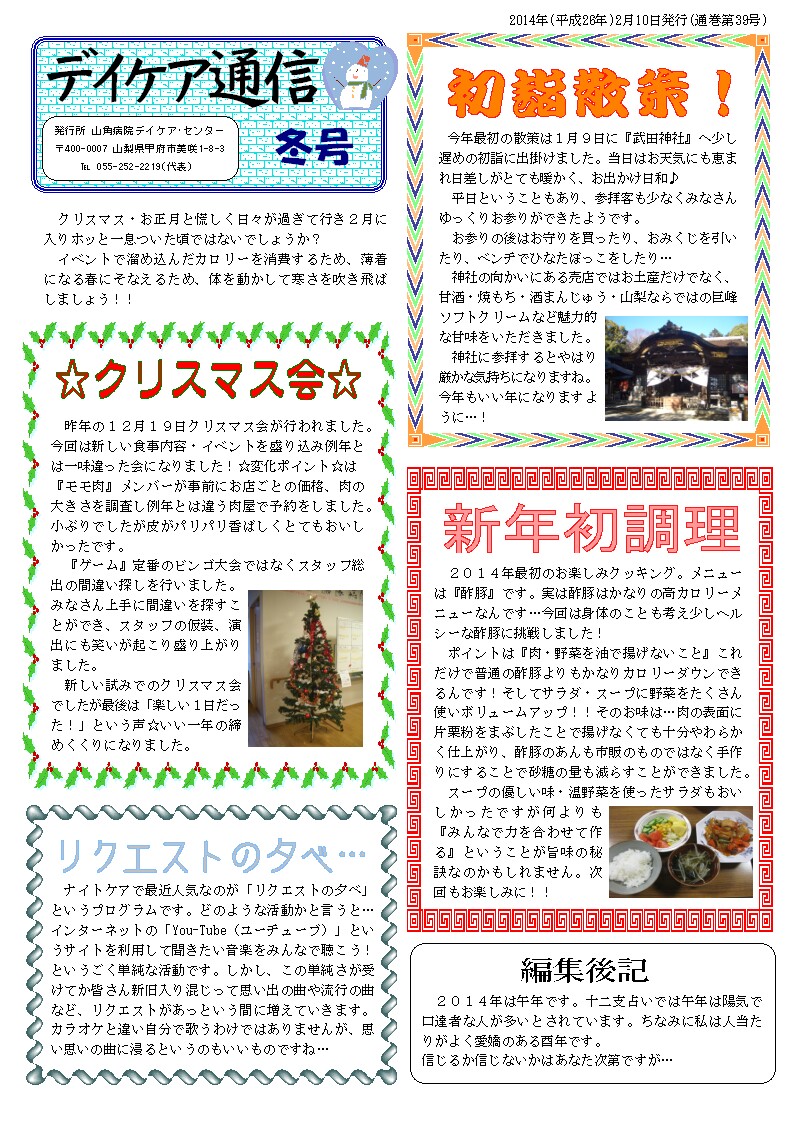 2014年(平成26年)2月10日発行(通巻第39号)
デイケア通信
発行所 山角病院デイケア・センター
〒400-0007 山梨県甲府市美咲1-8-3
℡ 055-252-2219(代表)
冬号
クリスマス・お正月と慌しく日々が過ぎて行き２月に
入りホッと一息ついた頃ではないでしょうか？
イベントで溜め込んだカロリーを消費するため、薄着
になる春にそなえるため、体を動かして寒さを吹き飛ば
しましょう！！
☆クリスマス会☆
昨年の１２月１９日クリスマス会が行われました。
今回は新しい食事内容・イベントを盛り込み例年と
は一味違った会になりました！☆変化ポイント☆は
『モモ肉』メンバーが事前にお店ごとの価格、肉の
大きさを調査し例年とは違う肉屋で予約をしました。
小ぶりでしたが皮がパリパリ香ばしくとてもおいし
かったです。
『ゲーム』定番のビンゴ大会ではなくスタッフ総
出の間違い探しを行いました。
みなさん上手に間違いを探すこ
とができ、スタッフの仮装、演
出にも笑いが起こり盛り上がり
ました。
新しい試みでのクリスマス会
でしたが最後は「楽しい１日だっ
た！」という声☆いい一年の締
めくくりになりました。
リクエストの夕べ…
ナイトケアで最近人気なのが「リクエストの夕べ」
というプログラムです。どのような活動かと言うと…
インターネットの「You-Tube（ユーチューブ）」とい
うサイトを利用して聞きたい音楽をみんなで聴こう！
というごく単純な活動です。しかし、この単純さが受
けてか皆さん新旧入り混じって思い出の曲や流行の曲
など、リクエストがあっという間に増えていきます。
カラオケと違い自分で歌うわけではありませんが、思
い思いの曲に浸るというのもいいものですね…
初詣散策！
今年最初の散策は１月９日に『武田神社』へ少し
遅めの初詣に出掛けました。当日はお天気にも恵ま
れ日差しがとても暖かく、お出かけ日和♪
平日ということもあり、参拝客も少なくみなさん
ゆっくりお参りができたようです。
お参りの後はお守りを買ったり、おみくじを引い
たり、ベンチでひなたぼっこをしたり…
神社の向かいにある売店ではお土産だけでなく、
甘酒・焼もち・酒まんじゅう・山梨ならではの巨峰
ソフトクリームなど魅力的
な甘味をいただきました。
神社に参拝するとやはり
厳かな気持ちになりますね。
今年もいい年になりますよ
うに…！
新年初調理
２０１４年最初のお楽しみクッキング。メニュー
は『酢豚』です。実は酢豚はかなりの高カロリーメ
ニューなんです…今回は身体のことも考え少しヘル
シーな酢豚に挑戦しました！
ポイントは『肉・野菜を油で揚げないこと』これ
だけで普通の酢豚よりもかなりカロリーダウンでき
るんです！そしてサラダ・スープに野菜をたくさん
使いボリュームアップ！！そのお味は…肉の表面に
片栗粉をまぶしたことで揚げなくても十分やわらか
く仕上がり、酢豚のあんも市販のものではなく手作
りにすることで砂糖の量も減らすことができました。
スープの優しい味・温野菜を使ったサラダもおい
しかったですが何よりも
『みんなで力を合わせて作
る』ということが旨味の秘
訣なのかもしれません。次
回もお楽しみに！！
編集後記
２０１４年は午年です。十二支占いでは午年は陽気で
口達者な人が多いとされています。ちなみに私は人当た
りがよく愛嬌のある酉年です。
信じるか信じないかはあなた次第ですが…